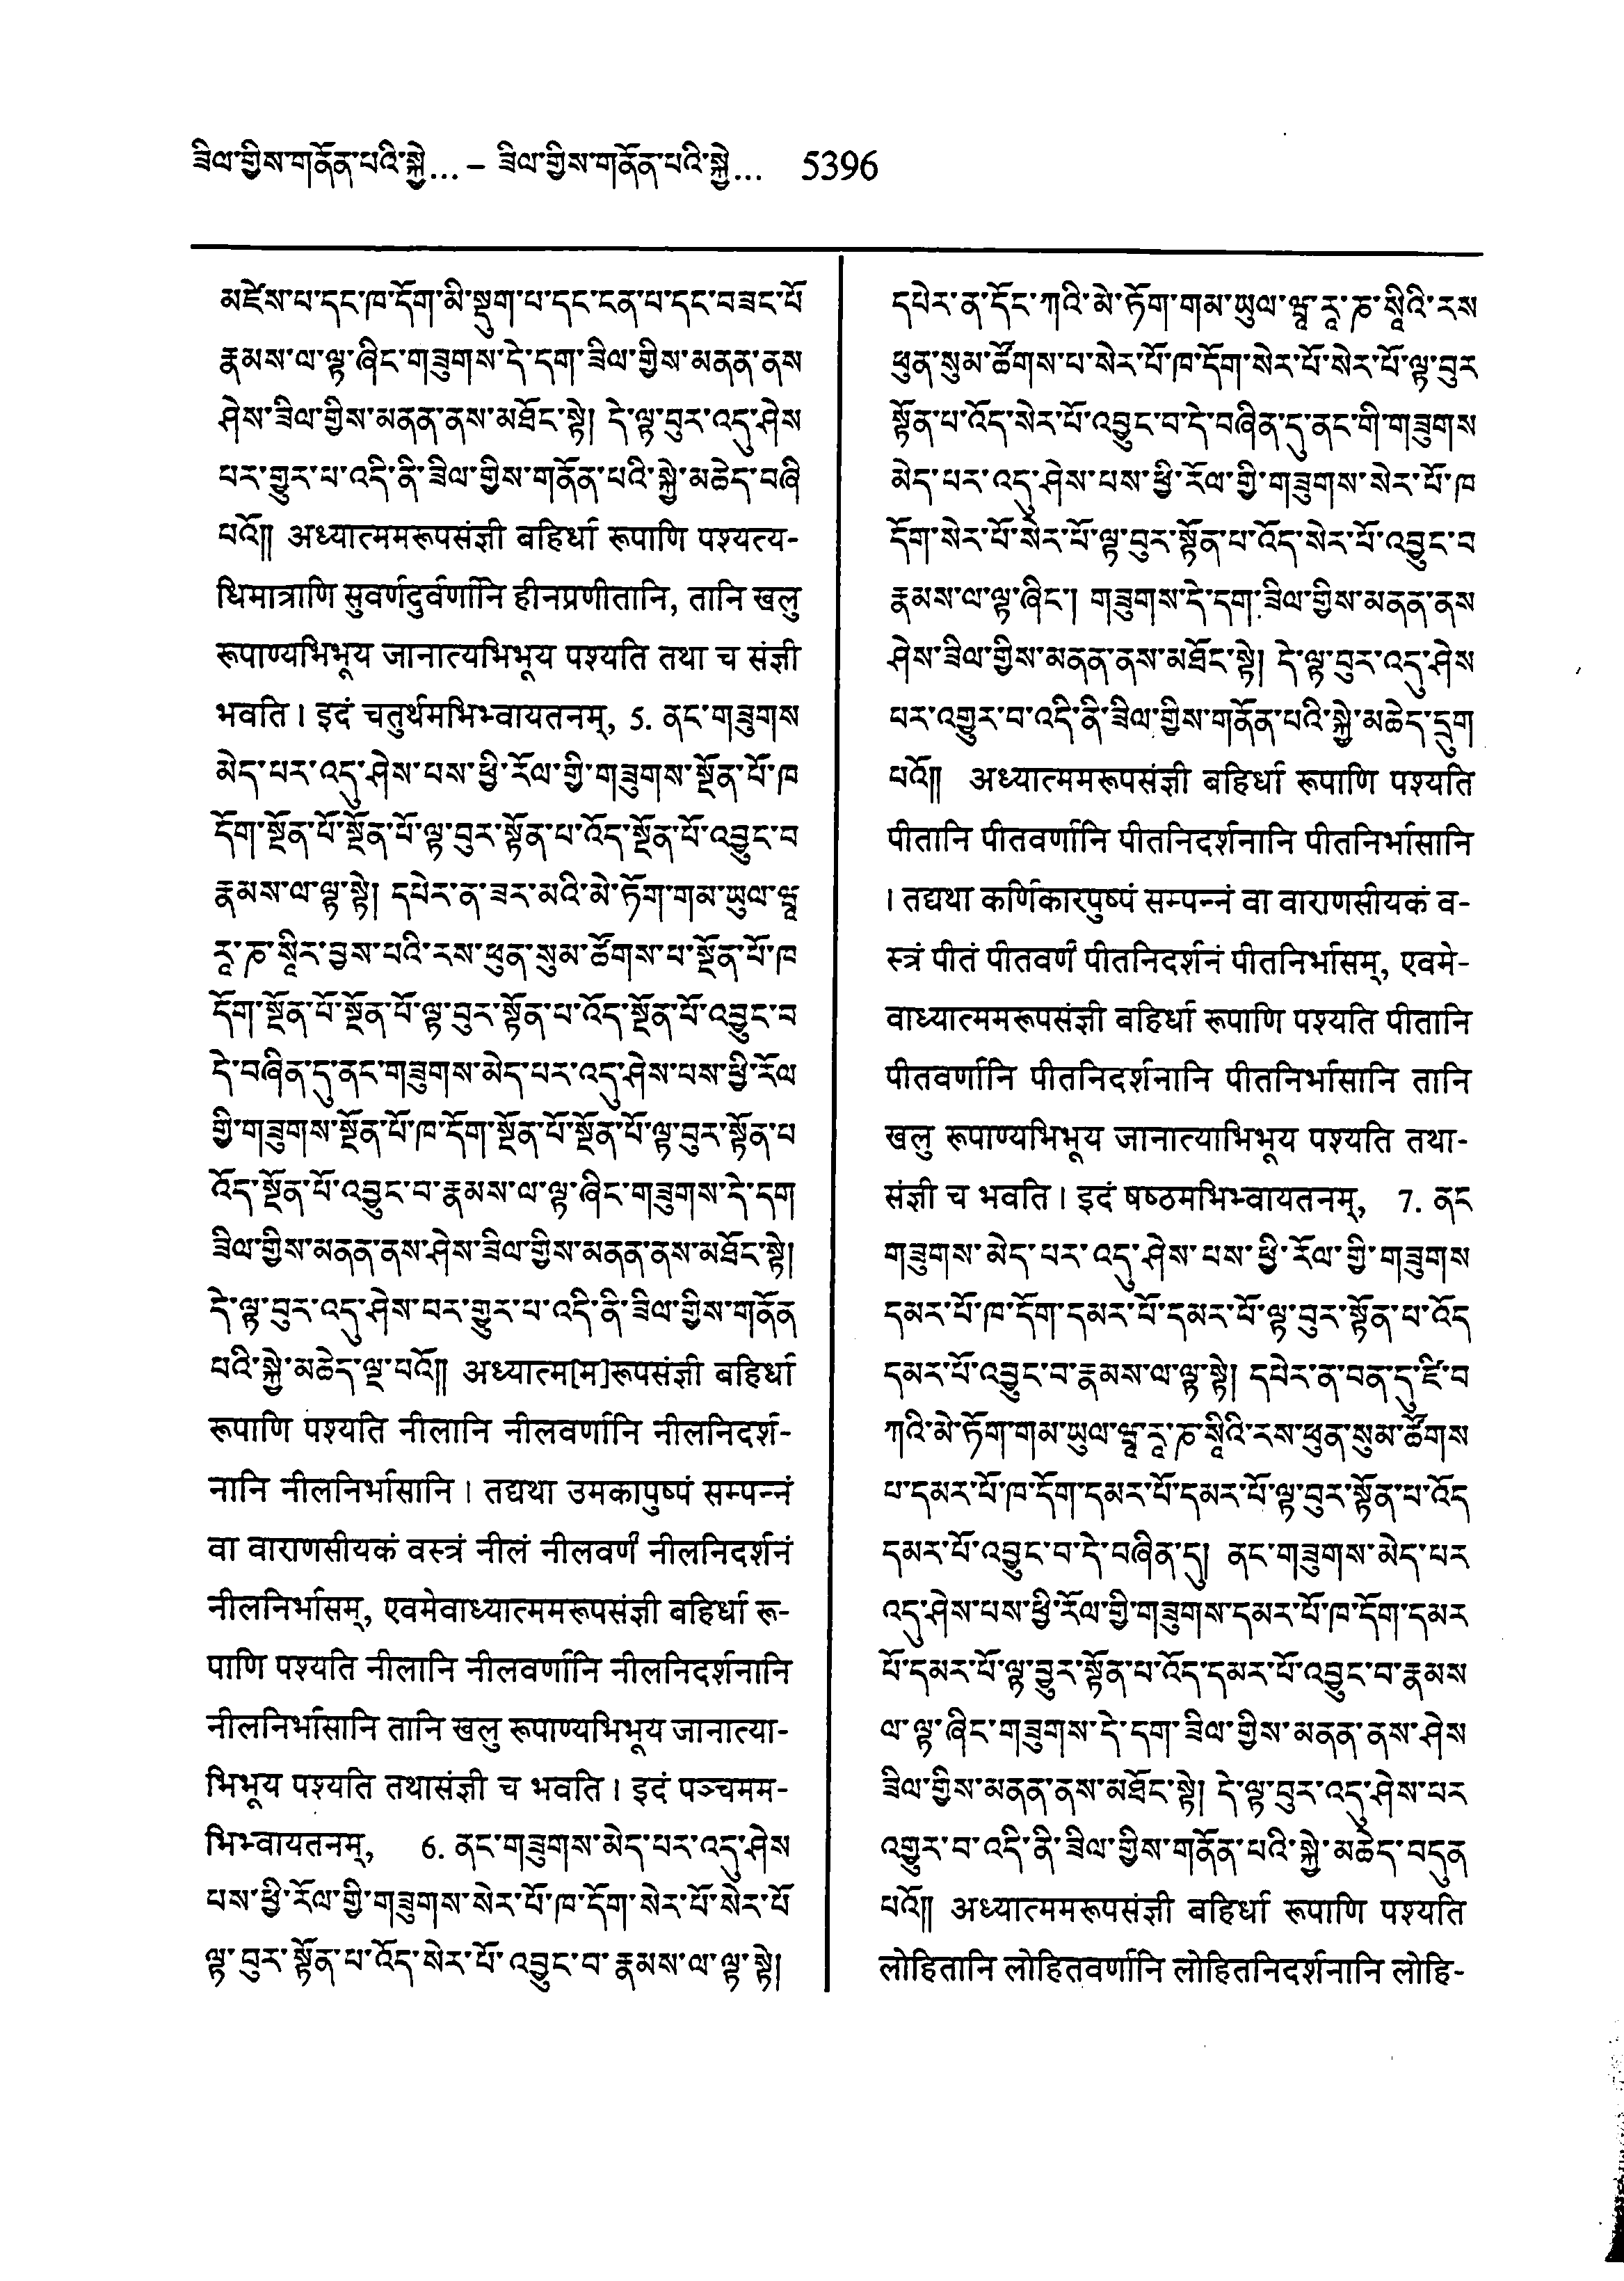 ཟིལ་གྱིས་གནོན་པའི་སྐྱེ...– ཟིལ་གྱིས་གནོན་པའི་སྐྱེ... 5396
མཛེས་པ་དང་ཁ་དོག་མི་སྡུག་པ་དང་ངན་པ་དང་བཟང་པོ
རྣམས་ལ་ལྟ་ཞིང་གཟུགས་དེ་དག་ཟིལ་གྱིས་མནན་ནས
ཤེས་ཟིལ་གྱིས་མནན་ནས་མཐོང་སྟེ། དེ་ལྟ་བུར་འདུ་ཤེས
པར་གྱུར་པ་འདི་ནི་ཟིལ་གྱིས་གནོན་པའི་སྐྱེ་མཆེད་བཞི
པའོ།། अध्यात्ममरूपसंज्ञी बहिर्धा रूपाणि पश्यत्य-
धिमात्राणि सुवर्णदुर्वर्णानि हीनप्रणीतानि, तानि खलु
रूपाण्यभिभूय जानात्यभिभूय पश्यति तथा च संज्ञी
भवति । इदं चतुर्थमभिभ्वायतनम्, 5. ནང་གཟུགས
མེད་པར་འདུ་ཤེས་པས་ཕྱི་རོལ་གྱི་གཟུགས་སྔོན་པོ་ཁ
དོག་སྔོན་པོ་སྔོན་པོ་ལྟ་བུར་སྟོན་པ་འོད་སྔོན་པོ་འབྱུང་བ
རྣམས་ལ་ལྟ་སྟེ། དཔེར་ན་ཟར་མའི་མེ་ཏོག་གམ་ཡུལ་ཝཱ
རཱ་ཎ་སཱིར་བྱས་པའི་རས་ཕུན་སུམ་ཚོགས་པ་སྔོན་པོ་ཁ
དོག་སྔོན་པོ་སྔོན་པོ་ལྟ་བུར་སྟོན་པ་འོད་སྔོན་པོ་འབྱུང་བ
དེ་བཞིན་དུ་ནང་གཟུགས་མེད་པར་འདུ་ཤེས་པས་ཕྱི་རོལ
གྱི་གཟུགས་སྔོན་པོ་ཁ་དོག་སྔོན་པོ་སྔོན་པོ་ལྟ་བུར་སྟོན་པ
འོད་སྔོན་པོ་འབྱུང་བ་རྣམས་ལ་ལྟ་ཞིང་གཟུགས་དེ་དག
ཟིལ་གྱིས་མནན་ནས་ཤེས་ཟིལ་གྱིས་མནན་ནས་མཐོང་སྟེ།
དེ་ལྟ་བུར་འདུ་ཤེས་པར་གྱུར་པ་འདི་ནི་ཟིལ་གྱིས་གནོན
པའི་སྐྱེ་མཆེད་ལྔ་པའོ།། अध्यात्म[म]रूपसंज्ञी बहिर्धा
रूपाणि पश्यति नीलानि नीलवर्णानि नीलनिदर्श-
नानि नीलनिर्भासानि । तद्यथा उमकापुष्पं सम्पन्नं
वा वाराणसीयकं वस्त्रं नीलं नीलवर्णं नीलनिदर्शनं
नीलनिर्भासम्, एवमेवाध्यात्ममरूपसंज्ञी बहिर्धा रू-
पाणि पश्यति नीलानि नीलवर्णानि नीलनिदर्शनानि
नीलनिर्भासानि तानि खलु रूपाण्यभिभूय जानात्या-
भिभूय पश्यति तथासंज्ञी च भवति । इदं पञ्चमम-
भिभ्वायतनम्, 6. ནང་གཟུགས་མེད་པར་འདུ་ཤེས
པས་ཕྱི་རོལ་གྱི་གཟུགས་སེར་པོ་ཁ་དོག་སེར་པོ་སེར་པོ
ལྟ་བུར་སྟོན་པ་འོད་སེར་པོ་འབྱུང་བ་རྣམས་ལ་ལྟ་སྟེ།
དཔེར་ན་དོང་ཀའི་མེ་ཏོག་གམ་ཡུལ་ཝཱ་རཱ་ཎ་སཱིའི་རས
ཕུན་སུམ་ཚོགས་པ་སེར་པོ་ཁ་དོག་སེར་པོ་སེར་པོ་ལྟ་བུར
སྟོན་པ་འོད་སེར་པོ་འབྱུང་བ་དེ་བཞིན་དུ་ནང་གི་གཟུགས
མེད་པར་འདུ་ཤེས་པས་ཕྱི་རོལ་གྱི་གཟུགས་སེར་པོ་ཁ
དོག་སེར་པོ་སེར་པོ་ལྟ་བུར་སྟོན་པ་འོད་སེར་པོ་འབྱུང་བ
རྣམས་ལ་ལྟ་ཞིང་། གཟུགས་དེ་དག་ཟིལ་གྱིས་མནན་ནས
ཤེས་ཟིལ་གྱིས་མནན་ནས་མཐོང་སྟེ། དེ་ལྟ་བུར་འདུ་ཤེས
པར་འགྱུར་བ་འདི་ནི་ཟིལ་གྱིས་གནོན་པའི་སྐྱེ་མཆེད་དྲུག
པའོ།། अध्यात्ममरूपसंज्ञी बहिर्धा रूपाणि पश्यति
पीतानि पीतवर्णानि पीतनिदर्शनानि पीतनिर्भासानि
। तद्यथा कर्णिकारपुष्पं सम्पन्नं वा वाराणसीयकं व-
स्त्रं पीतं पीतवर्णं पीतनिदर्शनं पीतनिर्भासम्, एवमे-
वाध्यात्ममरूपसंज्ञी बहिर्धा रूपाणि पश्यति पीतानि
पीतवर्णानि पीतनिदर्शनानि पीतनिर्भासानि तानि
खलु रूपाण्यभिभूय जानात्याभिभूय पश्यति तथा-
संज्ञी च भवति । इदं षष्ठमभिभ्वायतनम्, 7. ནང
གཟུགས་མེད་པར་འདུ་ཤེས་པས་ཕྱི་རོལ་གྱི་གཟུགས
དམར་པོ་ཁ་དོག་དམར་པོ་དམར་པོ་ལྟ་བུར་སྟོན་པ་འོད
དམར་པོ་འབྱུང་བ་རྣམས་ལ་ལྟ་སྟེ། དཔེར་ན་བན་དུ་ཛི་བ
ཀའི་མེ་ཏོག་གམ་ཡུལ་ཝཱ་རཱ་ཎ་སཱིའི་རས་ཕུན་སུམ་ཚོགས
པ་དམར་པོ་ཁ་དོག་དམར་པོ་དམར་པོ་ལྟ་བུར་སྟོན་པ་འོད
དམར་པོ་འབྱུང་བ་དེ་བཞིན་དུ། ནང་གཟུགས་མེད་པར
འདུ་ཤེས་པས་ཕྱི་རོལ་གྱི་གཟུགས་དམར་པོ་ཁ་དོག་དམར
པོ་དམར་པོ་ལྟ་བྱུར་སྟོན་པ་འོད་དམར་པོ་འབྱུང་བ་རྣམས
ལ་ལྟ་ཞིང་གཟུགས་དེ་དག་ཟིལ་གྱིས་མནན་ནས་ཤེས
ཟིལ་གྱིས་མནན་ནས་མཐོང་སྟེ། དེ་ལྟ་བུར་འདུ་ཤེས་པར
འགྱུར་བ་འདི་ནི་ཟིལ་གྱིས་གནོན་པའི་སྐྱེ་མཆེད་བདུན
པའོ།། अध्यात्ममरूपसंज्ञी बहिर्धा रूपाणि पश्यति
लोहितानि लोहितवर्णानि लोहितनिदर्शनानि लोहि-